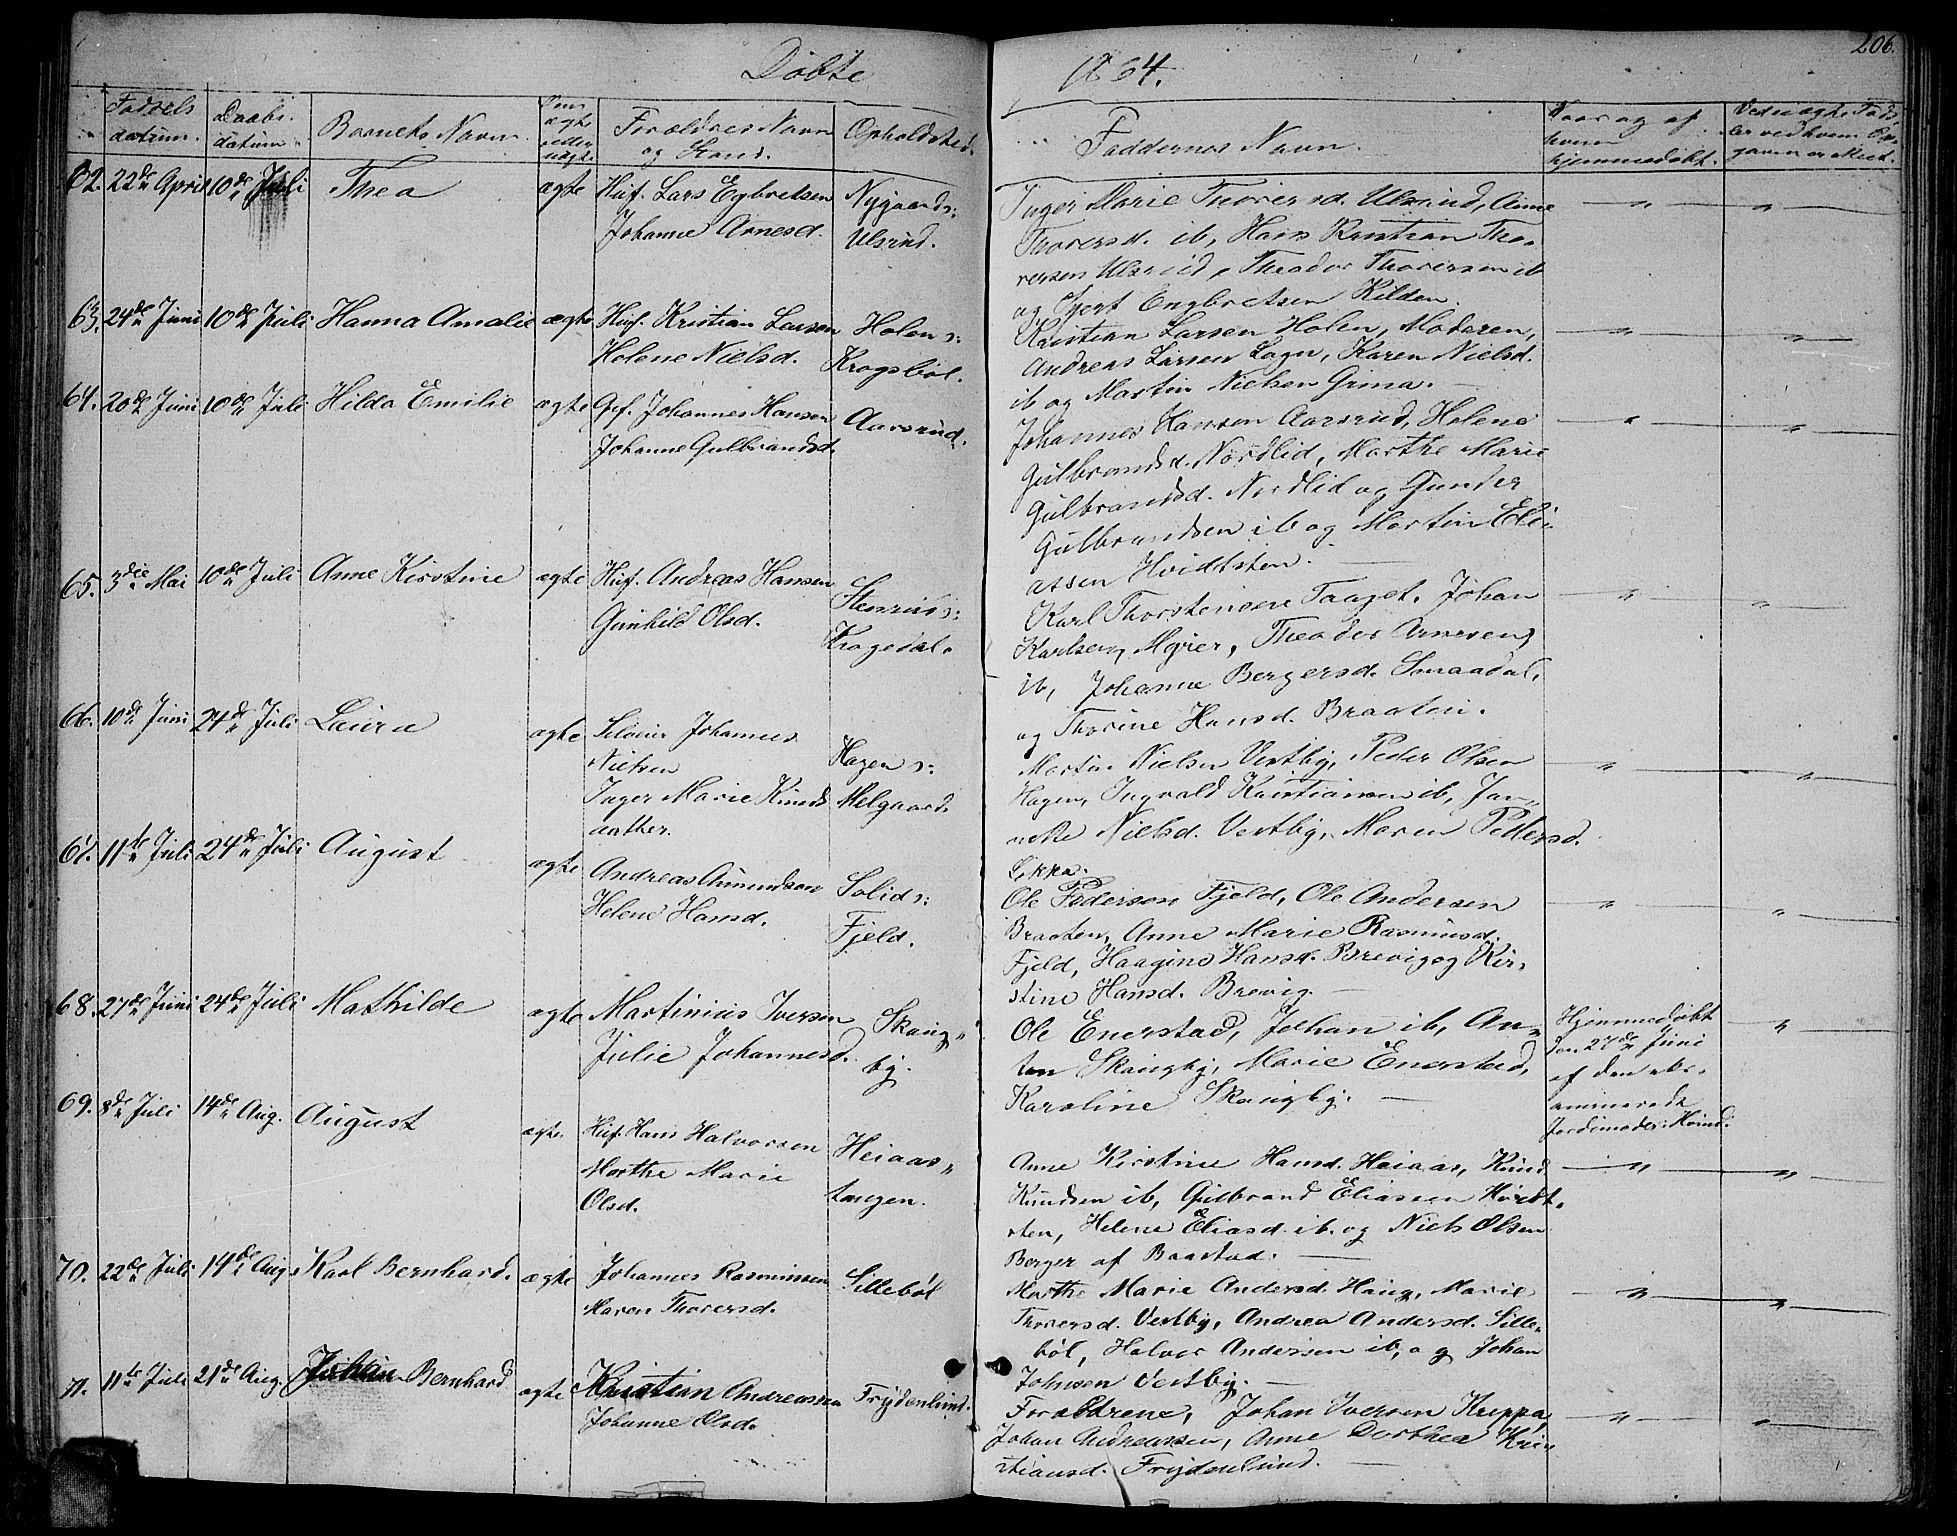 206.
Döbte 1864.
Fødsels datum. Daabs datum Barnets Navn Om ægte eller uægte Forældres Navn og Stand. Opholdsted. Faddernes Navn. Naar og af hvem hjemmedøbt.
62. 22de April 10de Juli Thea ægte Huf. Lars Egbretsen Nygaard s:
Johanne Arnesd. Ulsrud.
Inger Marie Thorersd. Ulsrud, Anne
Thorersd. ib, Hans Kristian Tho-
rersen Ulsrud, Theodor Thorersen ib
og Gjert Engbretsen Kilden.
63. 24de Juni 10de Juli Hanna Amalie ægte Huf. Kristian Larsen Holen s:
Helene Nielsd. Krogsböl.
Kristian Larsen Holen, Moderen,
Andreas Larsen Lagn, Karen Nielsd.
ib og Martin Nielsen Grina.
64. 20de Juni 10de Juli Hilda Emilie ægte Gf. Johannes Hansen Aarsrud.
Johanne Gulbrandsd.
Johannes Hansen Aarsrud, Helene
Gulbrandsd. Nordlid, Marthe Marie
Gulbrandsd. Nordlid og Gunder
Gulbrandsen ib og Martin Eli-
assen Hvidtsten.
65. 3die Mai 10de Juli Anne Kirstine ægte Huf. Andreas Hansen Stenrud s:
Gunhild Olsd. Krogsdal.
Karl Thorstensen Taaget, Johan
Karlsen, Myrer, Theodor Arnesen
ib, Johanne Bergersd. Smaadal,
og Thorine Hansd. Braaten.
66. 10de Juni 24de Juli Laura ægte Selveier Johannes
Nielsen Hagen s:
Inger Marie Knuds Melgaard.
datter.
Martin Nielsen Vestby, Peder Olsen
Hagen, Ingvald Kristiansen ib, Jan-
nette Nielsd. Vestby, Maren Pedersd.
Løkka.
67. 11te Juli 24de Juli August ægte Andreas Amundsen Solid s:
Helene Hansd. Fjeld.
Ole Pedersen Fjeld, Ole Andersen
Braaten, Anne Marie Rasmusd.
Fjeld, Haagine Hansd. Brevig og Kir-
stine Hansd. Brevig.
68. 27de Juni 24de Juli Mathilde ægte Martinius Iversen Skaug-
Julie Johannesd. by.
Ole Enerstad, Johan ib, An-
ton Skaugby, Marie Enerstad,
Karoline Skaugby.
Hjemmedöbt
den 27de Juni
af den eks-
aminerede
Jordemoder: Hvind.
69. 8de Juli 14de Aug. August ægte Huf. Hans Halvorsen Heiaas-
Marthe Marie tangen.
Olsd.
Anne Kirstine Hansd. Heiaas, Knud
Knudsen ib, Gulbrand Eliasen Hvidt-
sten, Helene Eliasd. ib. og Niels Olsen
Berger af Baastad.
70. 22de Juli 14de Aug. Karl Bernhard. ægte Johannes Rasmussen Silleböl
Maren Thorersd.
Marthe Marie Andersd. Haug, Marie
Thorersd. Vestby, Andrea Andersd. Sille-
böl, Halvor Andersen ib, og Johan
Johnsen Vestby.
71. 11te Juli 21de Aug. Johan Bernhard ægte Kristian Andreassen Frydenlund.
Johanne Olsd.
Forældrene, Johan Iversen Kreppa,
Johan Andreassen, Anne Dorthea Kri-
stiansd. Frydenlund.